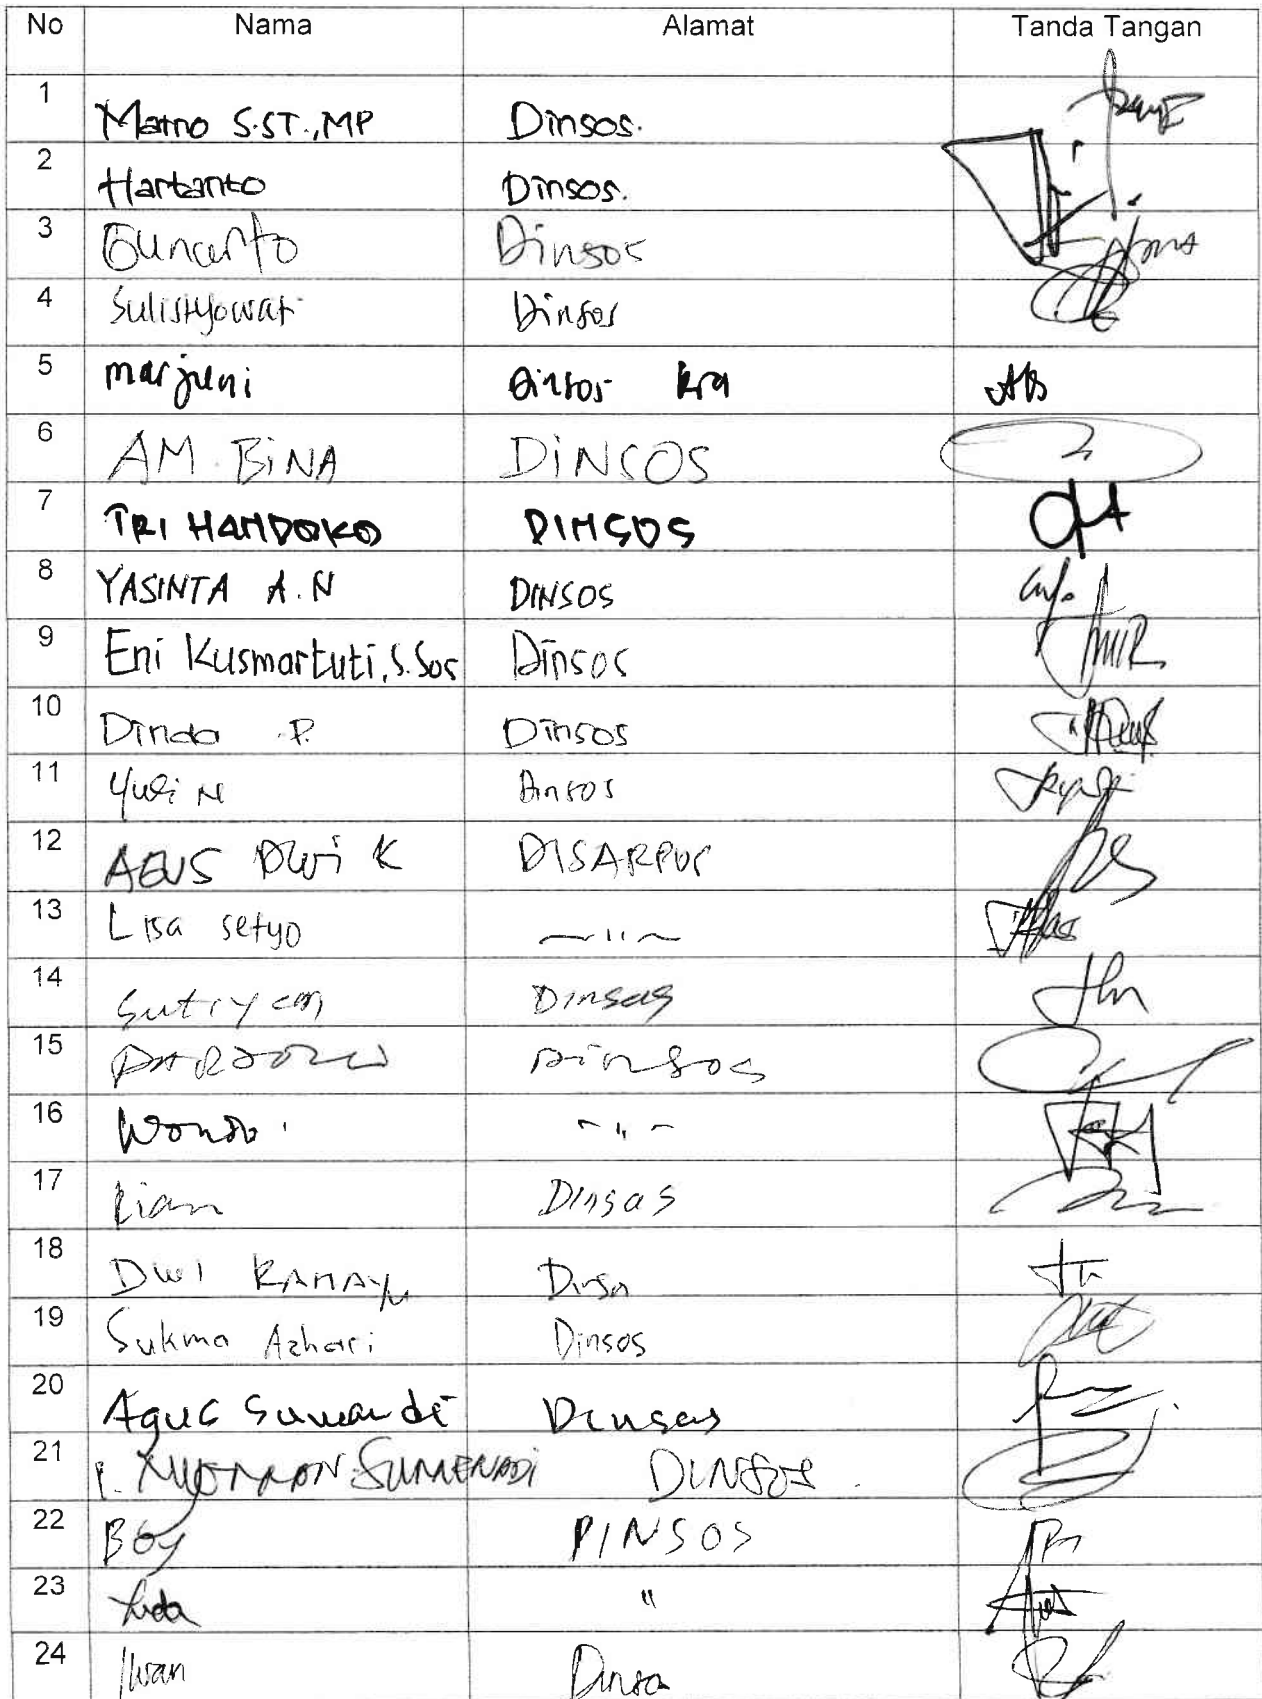 No Nama Alamat Tanda Tangan
1 Matno S.ST.,MP Dinsos.
2 Hartanto Dinsos.
3 Gunarto Dinsos
4 Sulistyowati Dinsos
5 marjuni Dinsos kra
6 AM. BiNA DiNSOS
7 TRI HANDOKO DINSOS
8 YASINTA A.N DINSOS
9 Eni Kusmartuti, S.Sos Dinsos
10 Dinda P. Dinsos
11 Yuli N Dinsos
12 AGUS DWi K DISARPUS
13 Lisa setyo ~ " ~
14 Sutiyem Dinsos
15 Dinsos
16 - " -
17 Rian Dinsos
18 DWI RAHAYU Dinsos
19 Sukma Azhari Dinsos
20 Agus Suwandi Dinsos
21 I. NYOMAN SUMENADI DINSOS.
22 Boy DINSOS
23 "
24 Iwan Dinsos